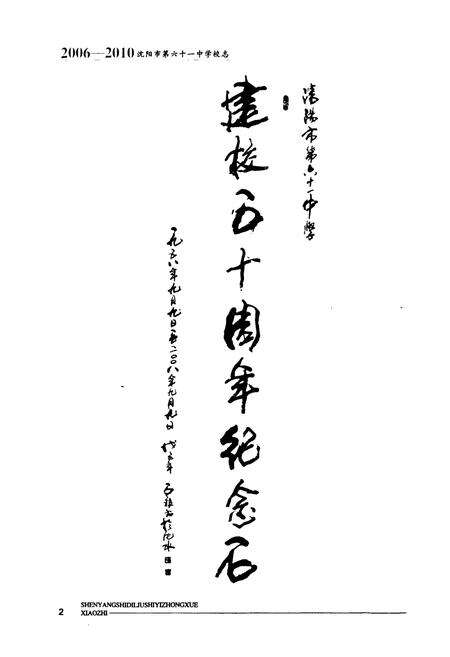 2006—2010沈阳市第六十一中学校志
瀋陽市第六十一中學
建校五十周年纪念石
一九五八年九月九日至二〇〇八年九月九日 戊子年
2
SHENYANGSHIDILIUSHIYIZHONGXUE
XIAOZHI